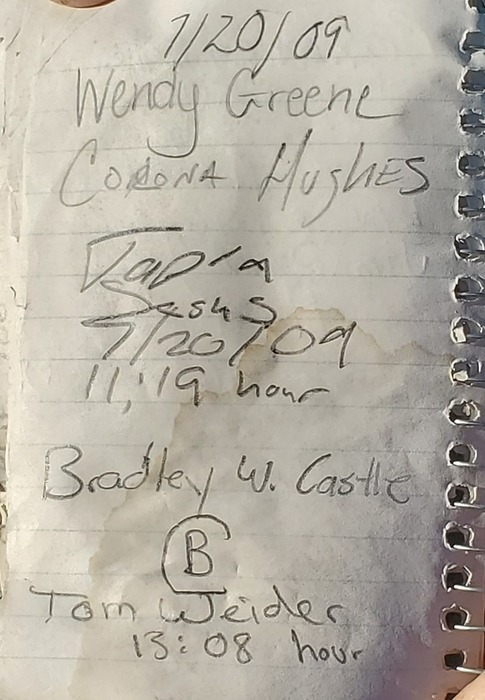 7/20/09
Wendy Greene
CORONA HughES
Tapia
Jesus
7/20/09
11:19 hour
Bradley W. Castle
B
Tom Weider
13:08 hour